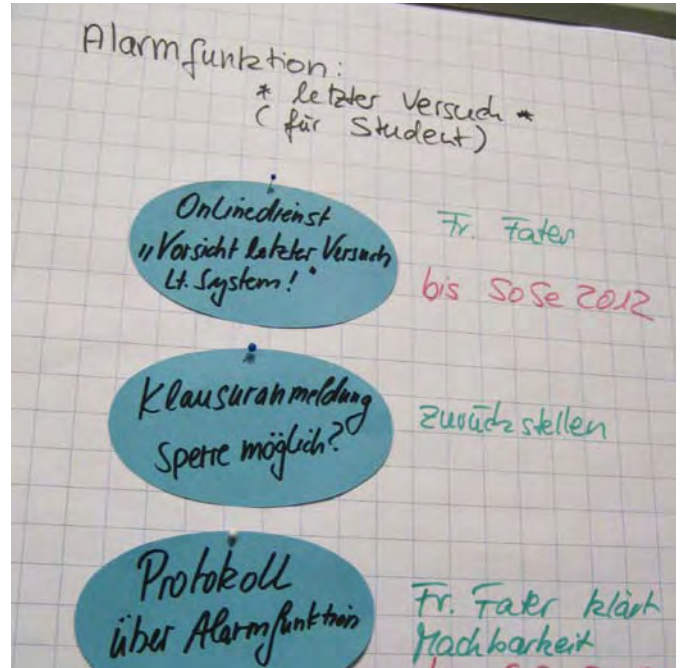 Alarmfunktion:
* letzter Versuch *
(für Student)
Onlinedienst
„Vorsicht letzter Versuch
Lt. System!"
Fr. Fater
bis SoSe 2012
Klausuranmeldung
Sperre möglich?
zurückstellen
Protokoll
über Alarmfunktion
Fr. Fater klärt
Machbarkeit